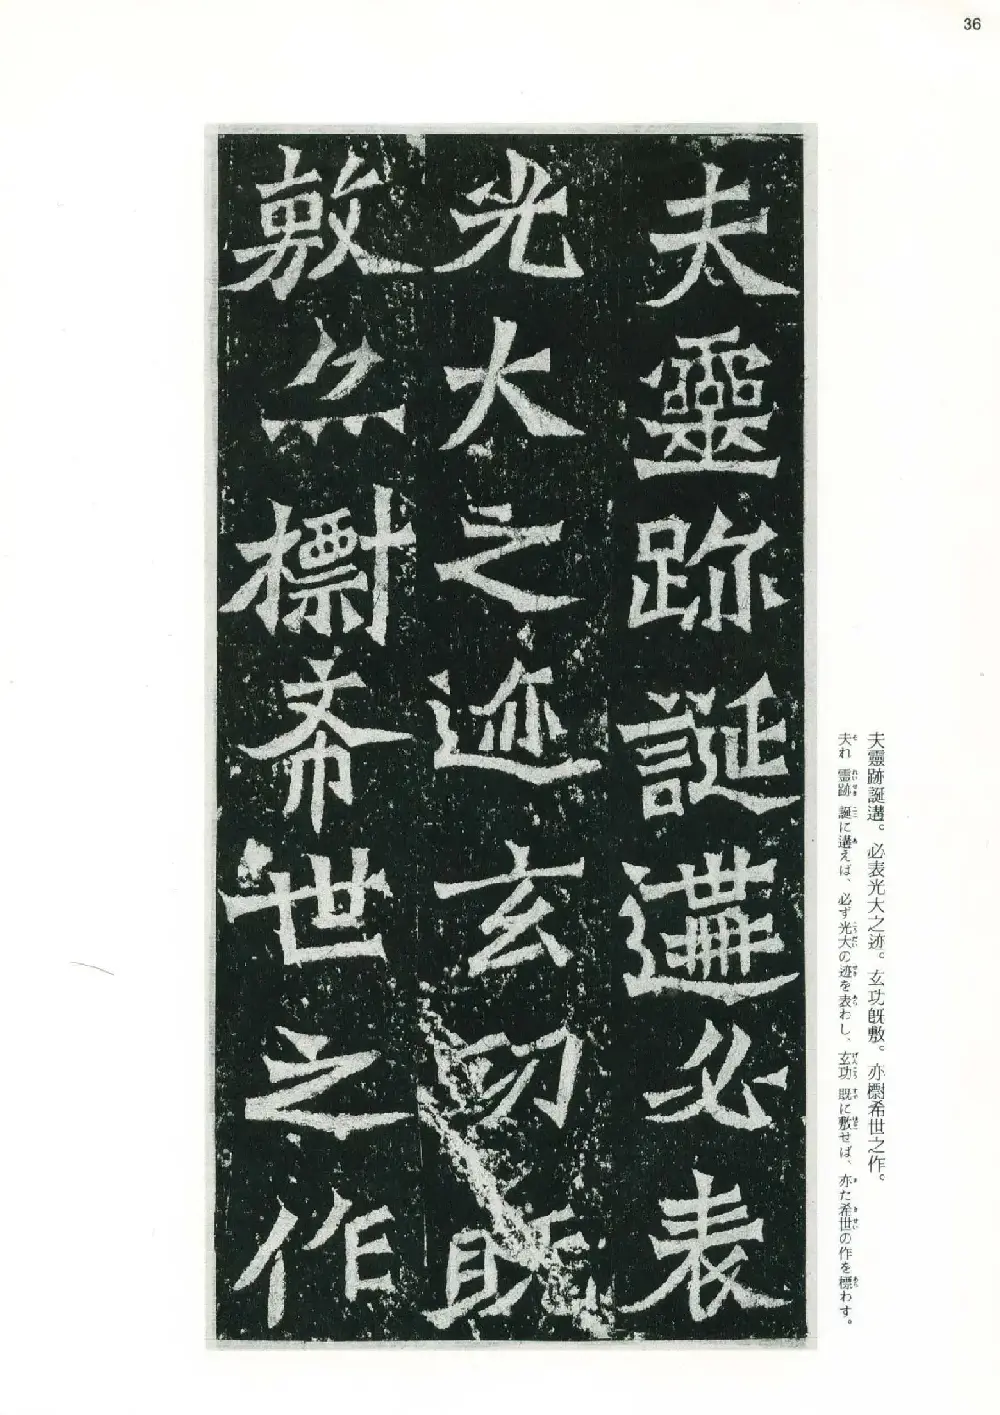 36
夫靈跡誕遘必表
光大之迹玄功既
敷亦樹希世之作
夫靈跡誕遘。必表光大之迹。玄功既敷。亦樹希世之作。
夫れ靈跡誕に遘えば、必ず光大の迹を表わし、玄功既に敷せば、亦た希世の作を標わす。